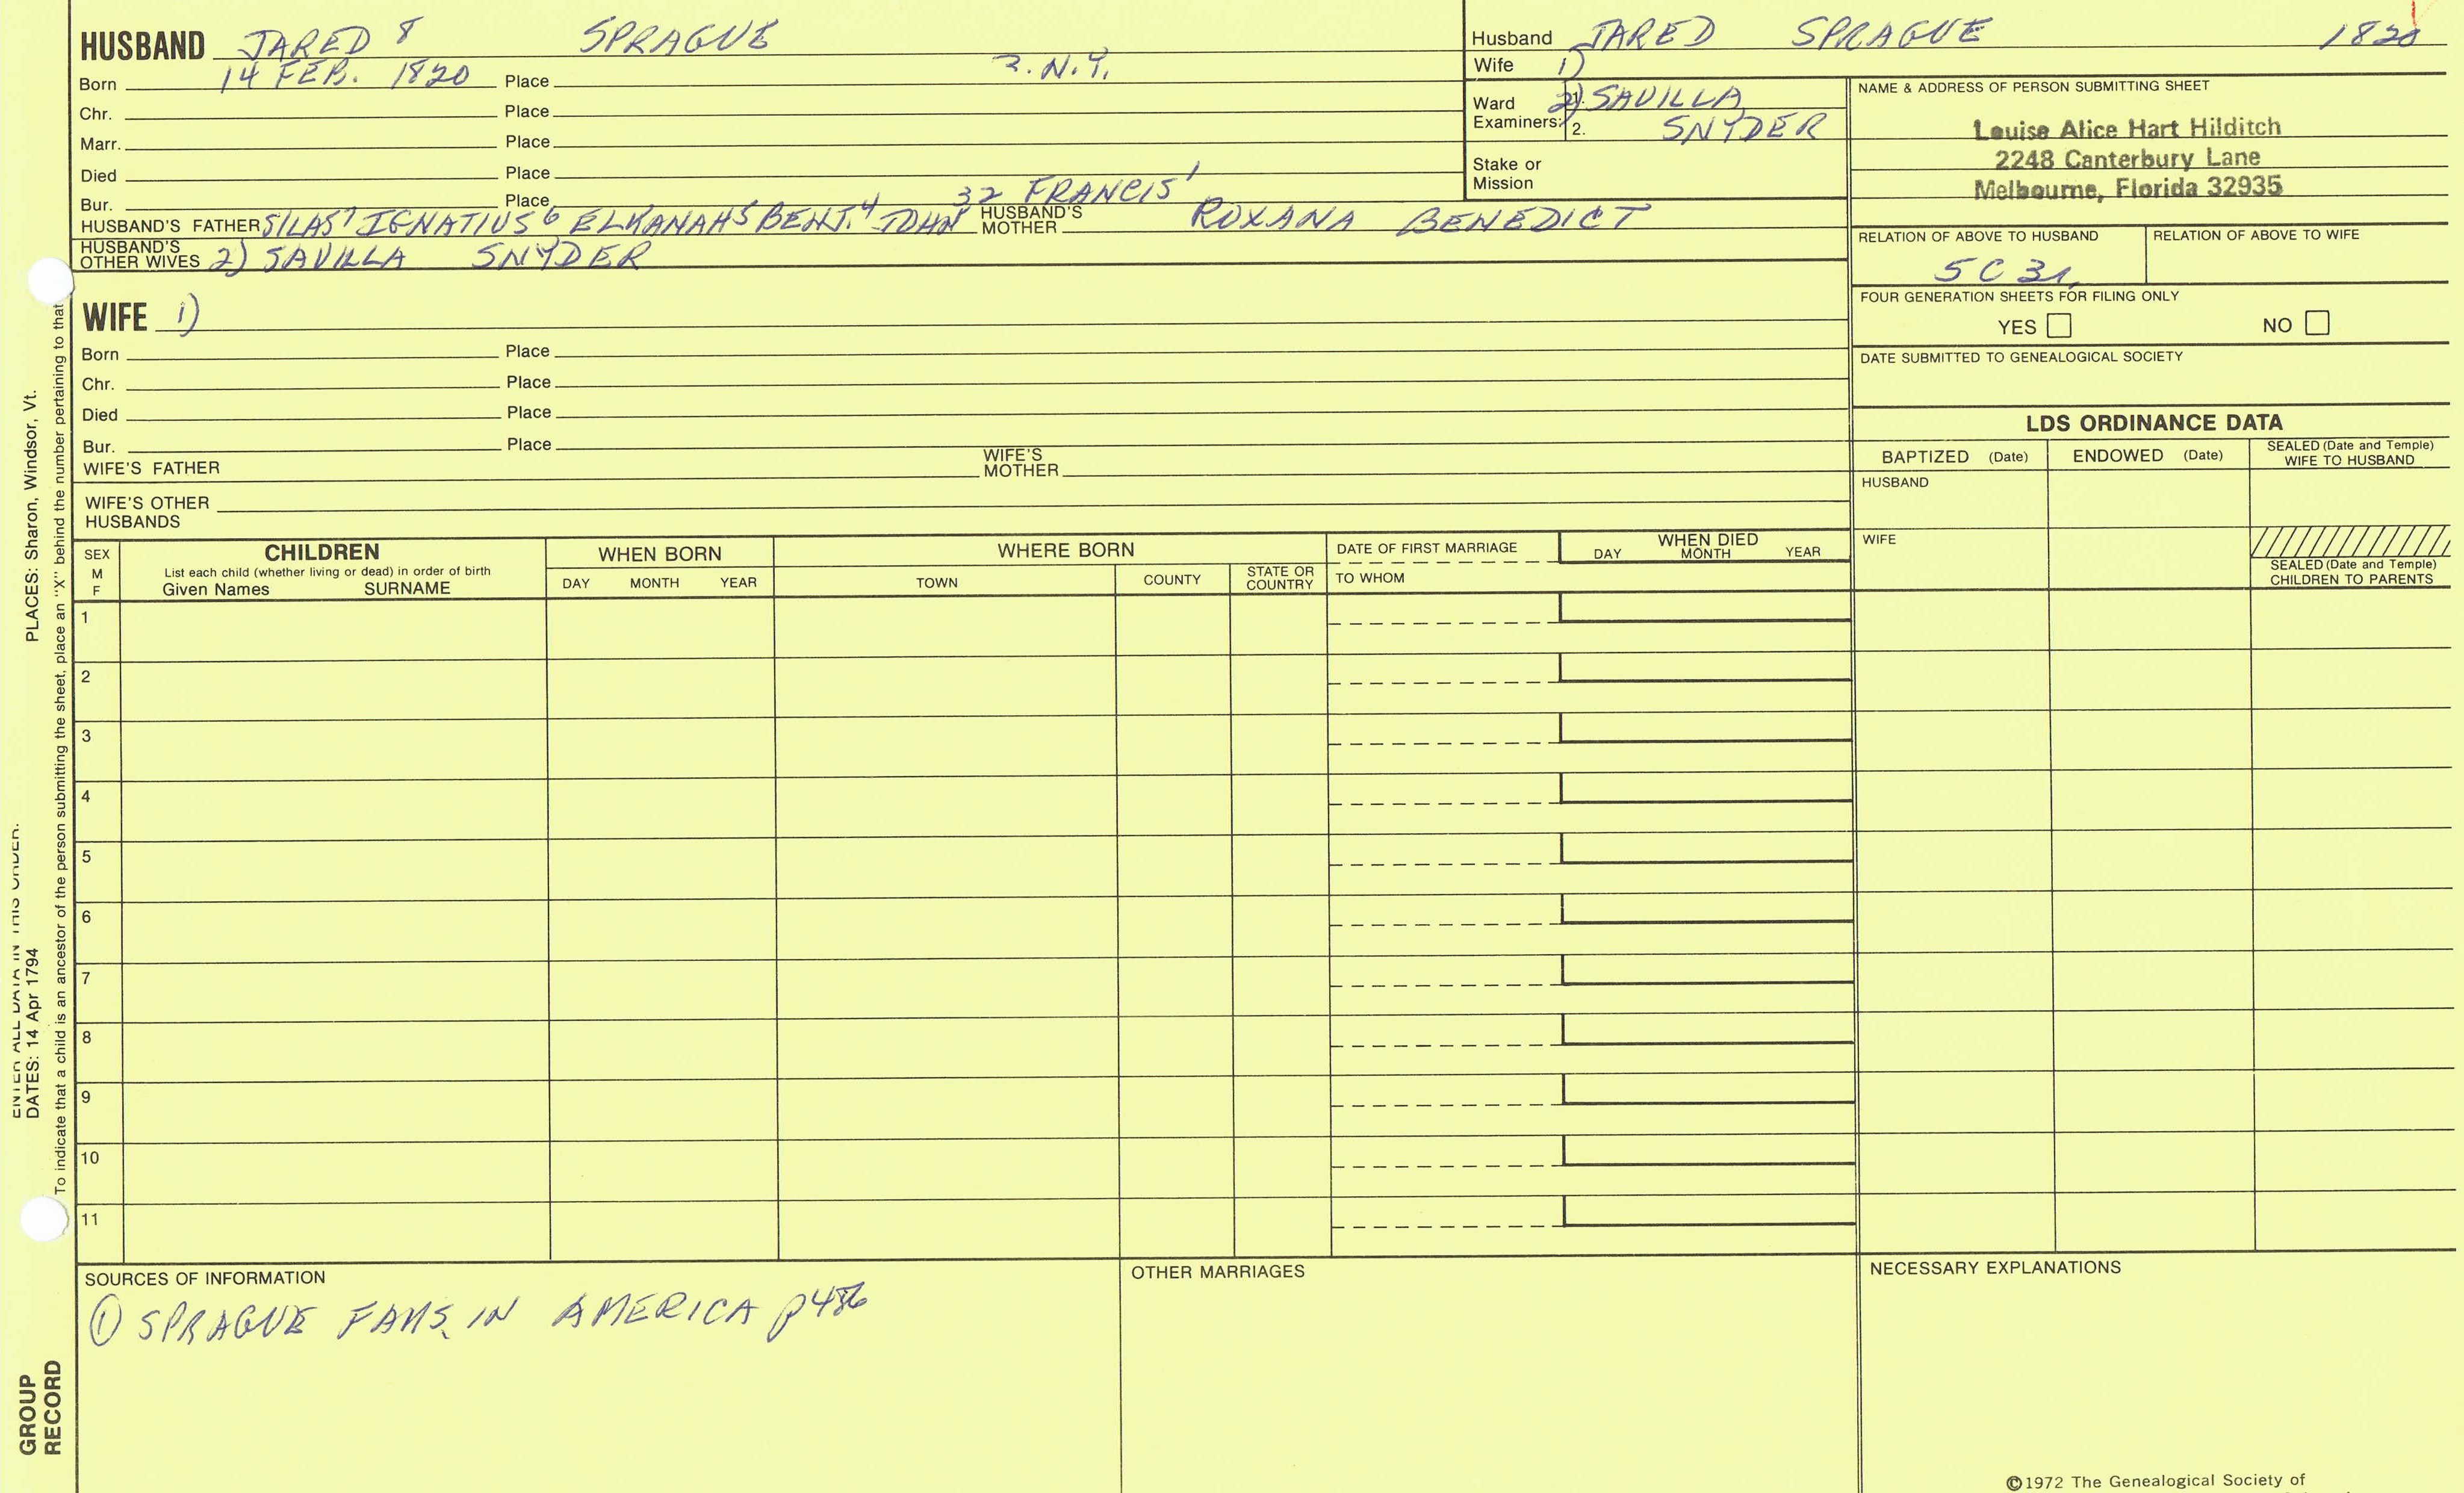 HUSBAND JARED 8 SPRAGUE
Born 14 FEB. 1820 Place ?. N.Y.
Chr. Place
Marr. Place
Died Place
Bur. Place
32 FRANCIS1
HUSBAND'S FATHER SILAS7 IGNATIUS6 ELKANAH5 BENJ.4 JOHN HUSBAND'S MOTHER ROXANA BENEDICT
HUSBAND'S OTHER WIVES 2) SAVILLA SNYDER
Husband JARED SPRAGUE 1820
Wife 1)
Ward Examiners: 1. 2) SAVILLA
2. SNYDER
Stake or Mission
NAME & ADDRESS OF PERSON SUBMITTING SHEET
Louise Alice Hart Hilditch
2248 Canterbury Lane
Melbourne, Florida 32935
RELATION OF ABOVE TO HUSBAND RELATION OF ABOVE TO WIFE
5 C 3
FOUR GENERATION SHEETS FOR FILING ONLY
YES NO
DATE SUBMITTED TO GENEALOGICAL SOCIETY
WIFE 1)
Born Place
Chr. Place
Died Place
Bur. Place
WIFE'S FATHER WIFE'S MOTHER
WIFE'S OTHER HUSBANDS
LDS ORDINANCE DATA
BAPTIZED (Date) ENDOWED (Date) SEALED (Date and Temple) WIFE TO HUSBAND
HUSBAND
WIFE
SEALED (Date and Temple) CHILDREN TO PARENTS
SEX M F
CHILDREN
List each child (whether living or dead) in order of birth
Given Names SURNAME
WHEN BORN
DAY MONTH YEAR
WHERE BORN
TOWN COUNTY STATE OR COUNTRY
DATE OF FIRST MARRIAGE
TO WHOM
WHEN DIED
DAY MONTH YEAR
1
2
3
4
5
6
7
8
9
10
11
SOURCES OF INFORMATION
① SPRAGUE FAMS. IN AMERICA p486
OTHER MARRIAGES
NECESSARY EXPLANATIONS
©1972 The Genealogical Society of
ENTER ALL DATA IN THIS ORDER.
PLACES: Sharon, Windsor, Vt.
DATES: 14 Apr 1794
To indicate that a child is an ancestor of the person submitting the sheet, place an "X" behind the number pertaining to that
GROUP
RECORD